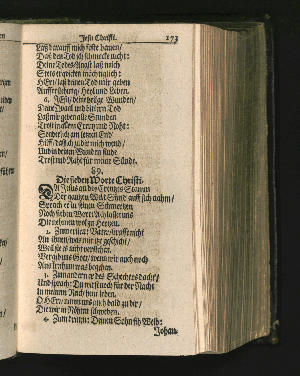 Jesu Christi. 173
Laß darauff mich feste bauen/
Daß den Tod ich schmecke nicht:
Deine Todes-Angst laß mich
Stets erquicken mächtiglich:
HErr/ laß deinen Tod mir geben
Aufferstehung/ Heyl und Leben.
6. JEsu/ deine heilge Wunden/
Deine Quaal und bittern Tod
Laß mir geben alle Stunden
Trost in allem Creutz und Noht:
Sonderlich am letzten End
Hilff/ daß ich zu dir mich wend/
Trost und Ruh für meine Sünde.
69.
Die sieben Worte Christi:
DA JEsus an des Creutzes Stamm
Der gantzen Welt Sünd auff sich nahm/
Sprach er in seinen Schmertzen
Noch sieben Wort/
Die nehmen wol zu Hertzen.
2. Zum ersten: Vater/ straffe nicht
An ihnen/ was mir ist geschicht/
Weil sie es nicht verstehen.
Vergib uns Gott/ wenn wir auch noch
Aus Irrthum was begehen.
3. Zum andern er des Schechers dacht/
Und sprach: Du wirst noch für der Nacht
In meinem Reich heut leben.
O HErr/ nimm uns auch bald zu dir/
Die wir in Nöhten schweben.
4. Zum dritten: Deinen Sohn sih Weib:
Johan-